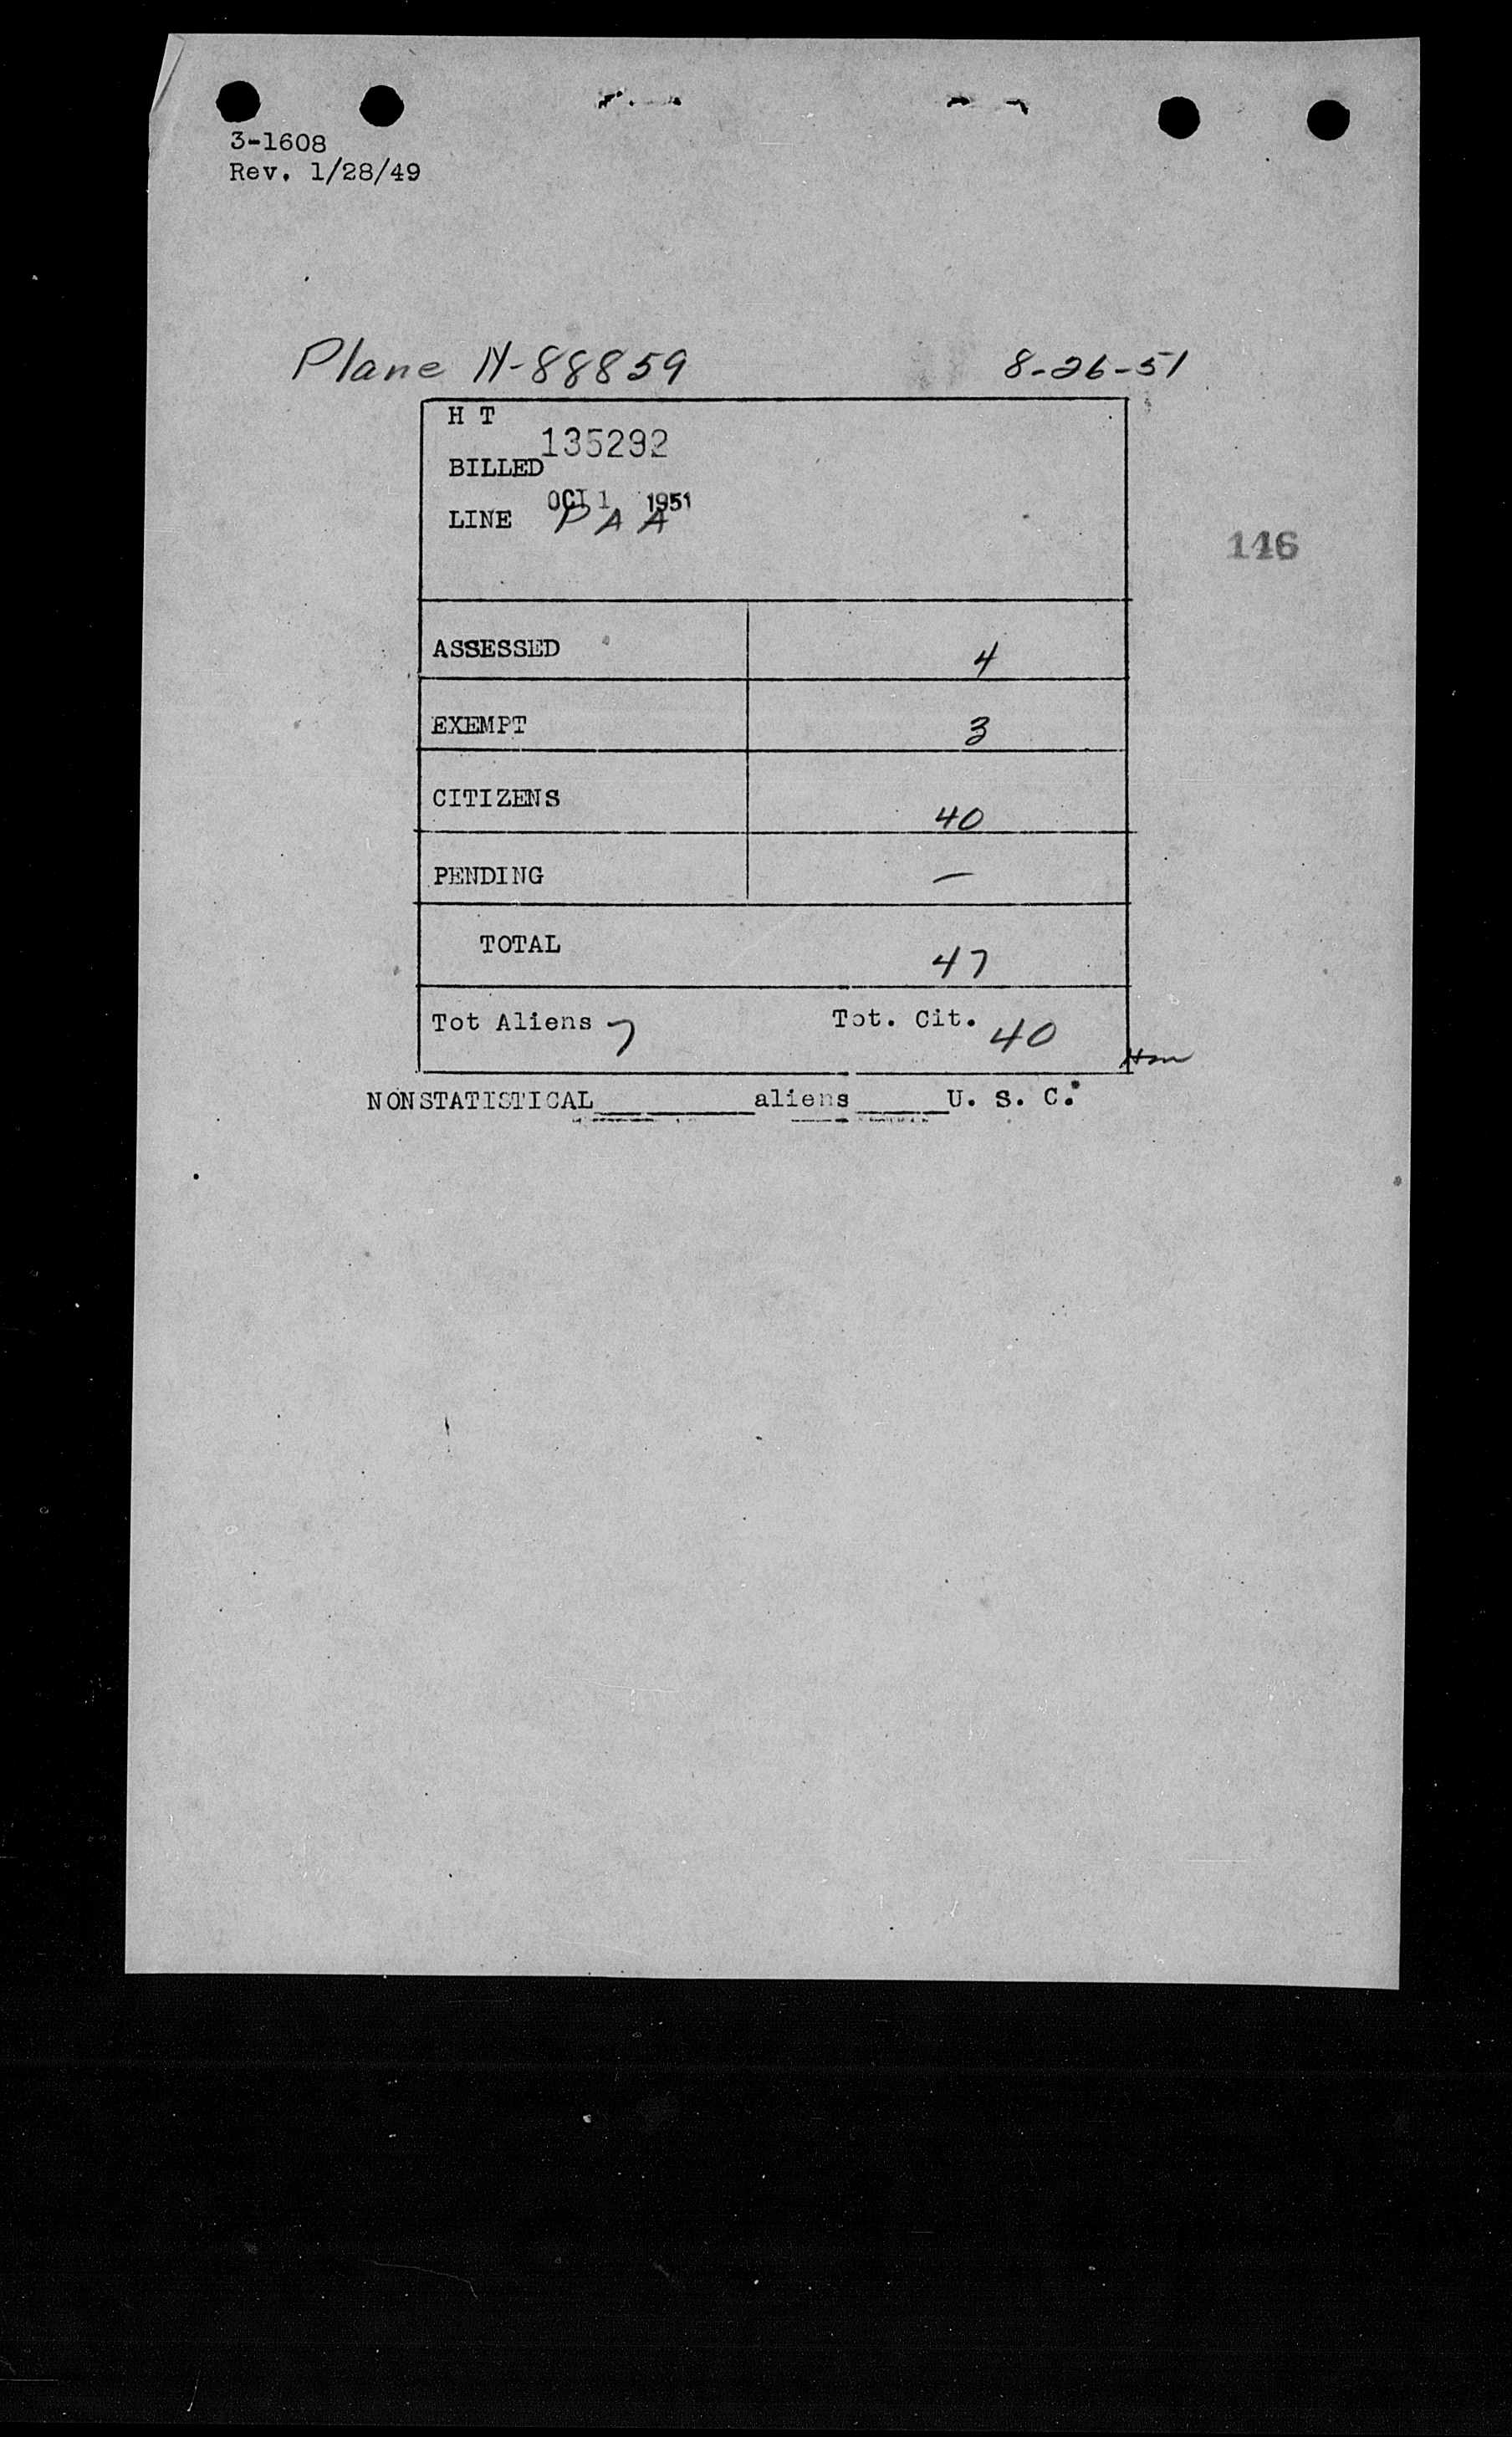 3-1608
Rev. 1/28/49
Plane N-88859 8-26-51
H T
135292
BILLED
OCT 1 1951
LINE PAA
146
ASSESSED 4
EXEMPT 3
CITIZENS 40
PENDING —
TOTAL 47
Tot Aliens 7 Tot. Cit. 40
NONSTATISTICAL__________aliens______U. S. C.